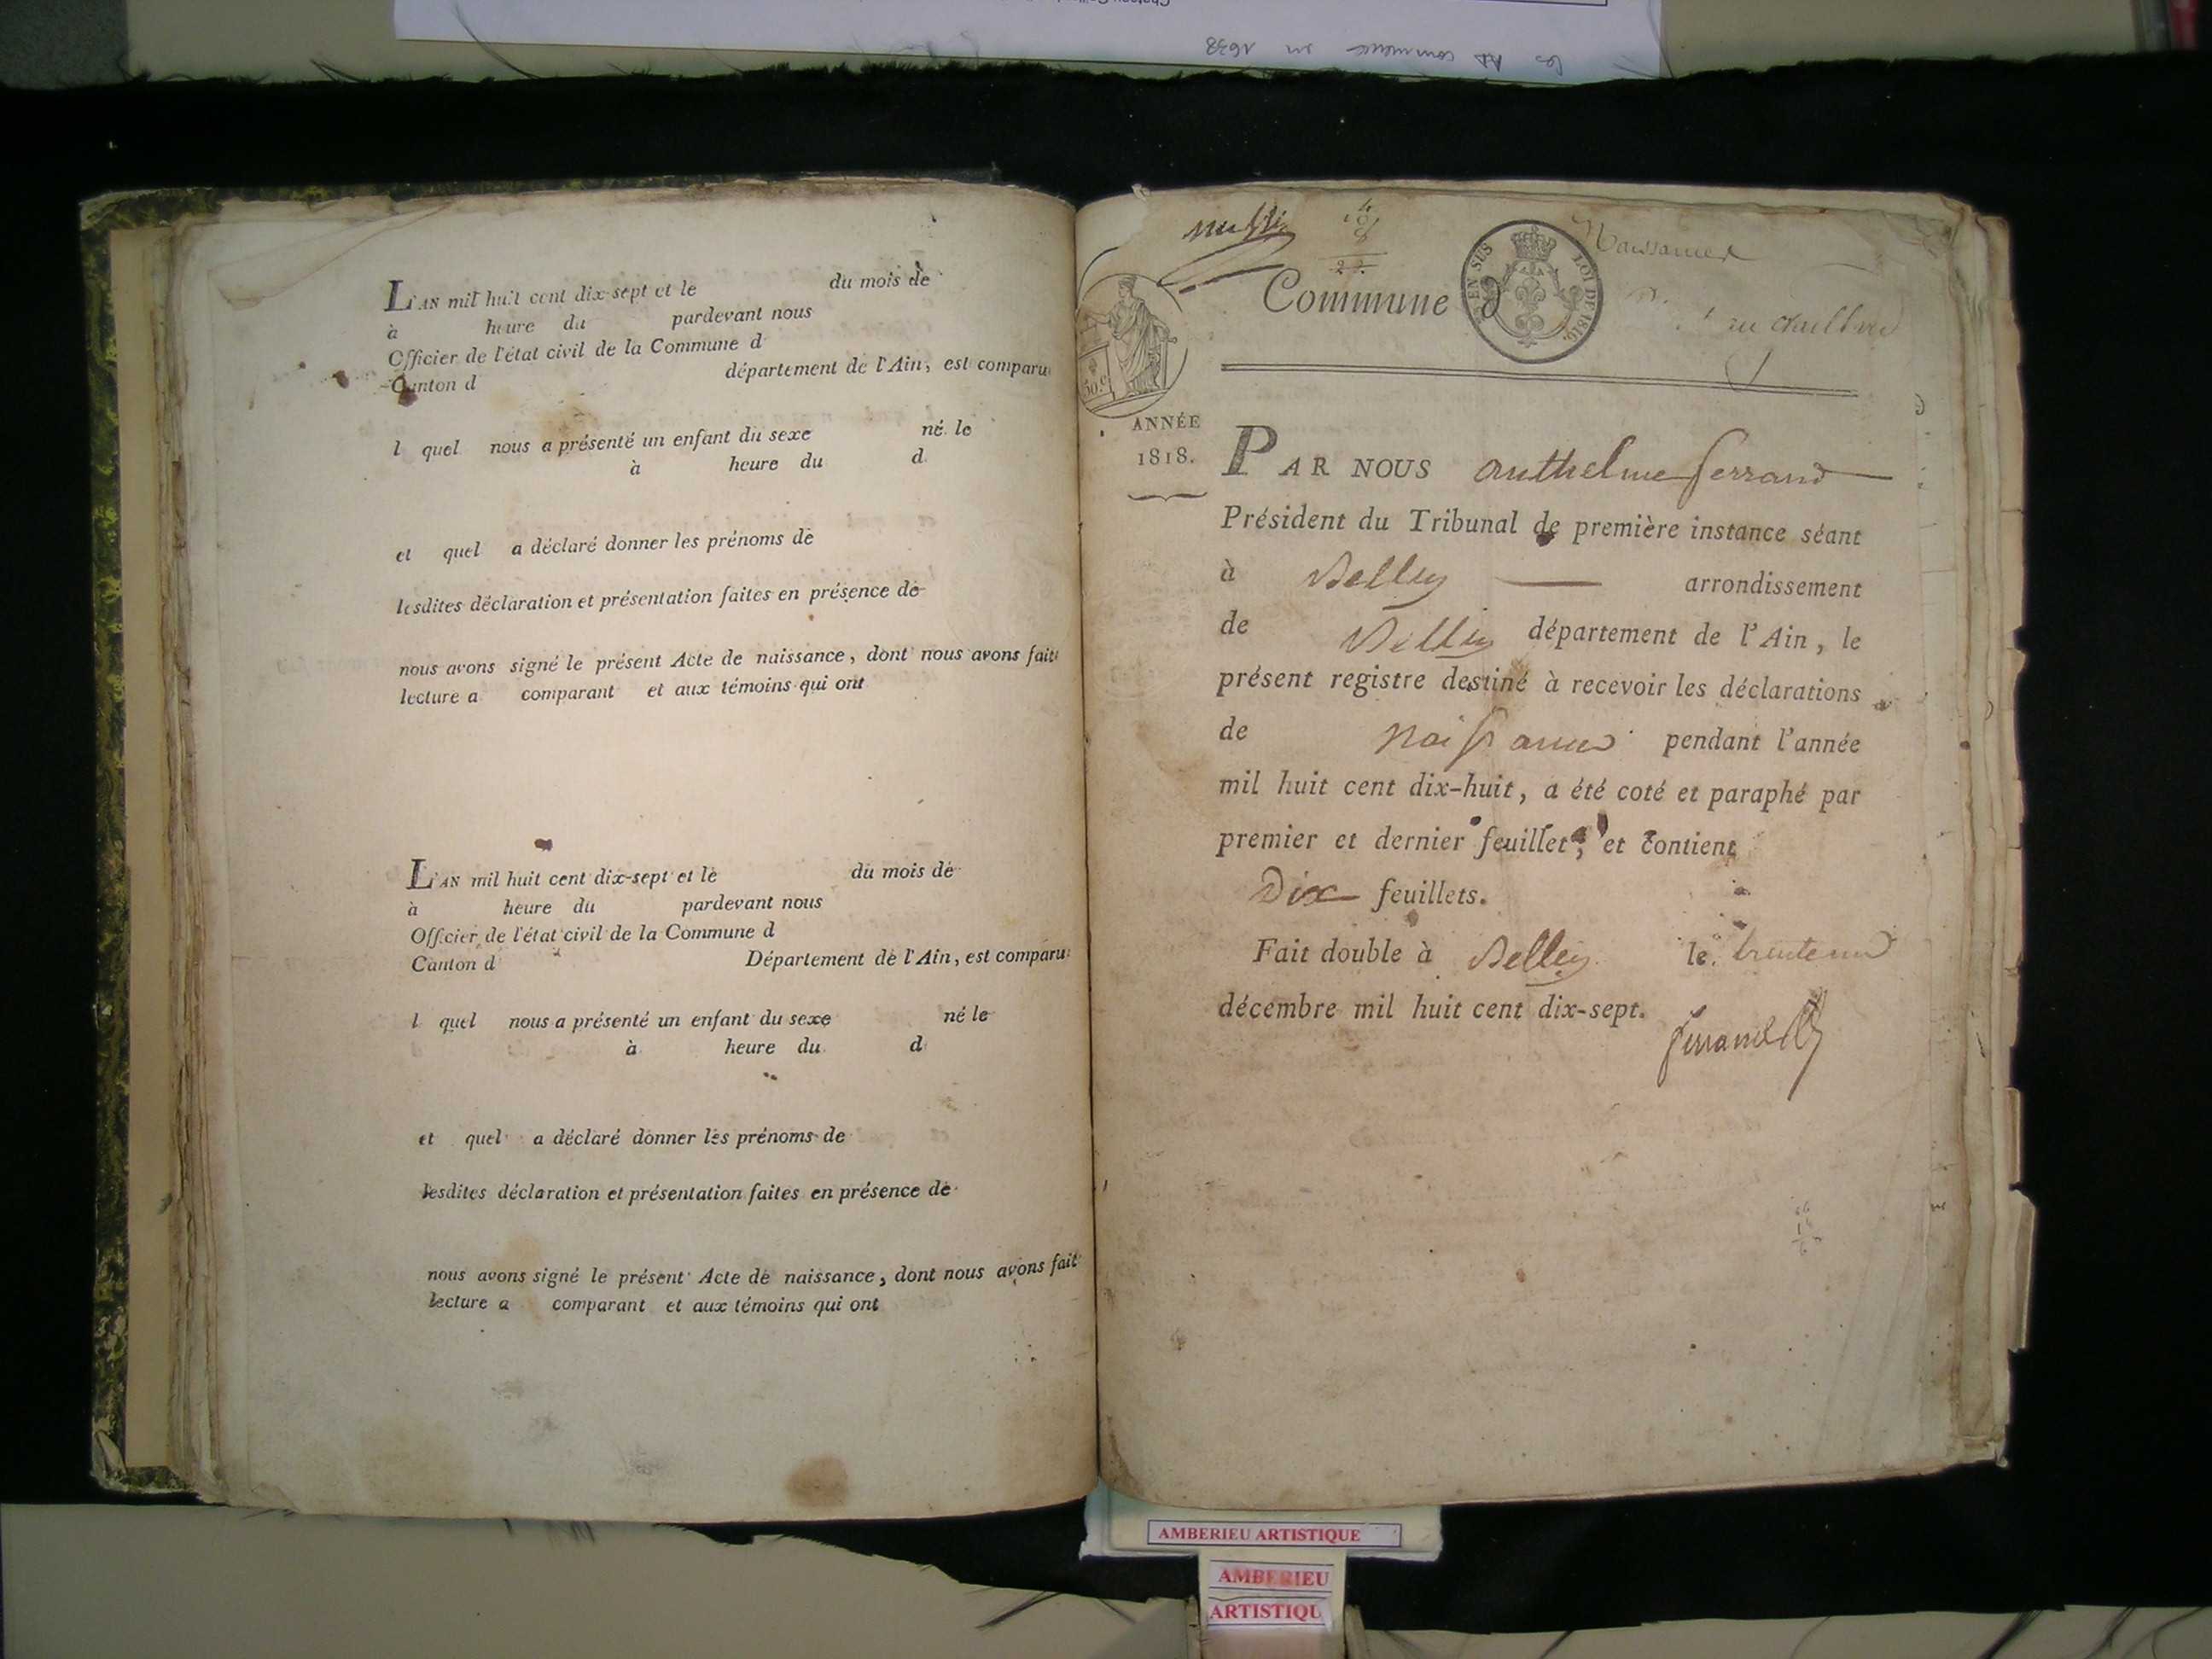 L'AN mil huit cent dix-sept et le du mois de
à heure du pardevant nous
Officier de l'état civil de la Commune d
Canton d département de l'Ain, est comparu
l quel nous a présenté un enfant du sexe né le
à heure du d
et quel a déclaré donner les prénoms de
lesdites déclaration et présentation faites en présence de
nous avons signé le présent Acte de naissance, dont nous avons fait
lecture a comparant et aux témoins qui ont
L'AN mil huit cent dix-sept et le du mois de
à heure du pardevant nous
Officier de l'état civil de la Commune d
Canton d Département de l'Ain, est comparu
l quel nous a présenté un enfant du sexe né le
à heure du d
et quel a déclaré donner les prénoms de
lesdites déclaration et présentation faites en présence de
nous avons signé le présent Acte de naissance, dont nous avons fait
lecture a comparant et aux témoins qui ont
Naissances
EN SUS LOI DE 1816.
Commune d
50.c
ANNÉE
1818.
PAR NOUS Anthelme ferrand
Président du Tribunal de première instance séant
à Belley arrondissement
de Belley département de l'Ain, le
présent registre destiné à recevoir les déclarations
de Naissances pendant l'année
mil huit cent dix-huit, a été coté et paraphé par
premier et dernier feuillet, et contient
Dix feuillets.
Fait double à Belley le trente un
décembre mil huit cent dix-sept.
ferrand
AMBERIEU ARTISTIQUE
AMBERIEU
ARTISTIQU
les commence en 1638